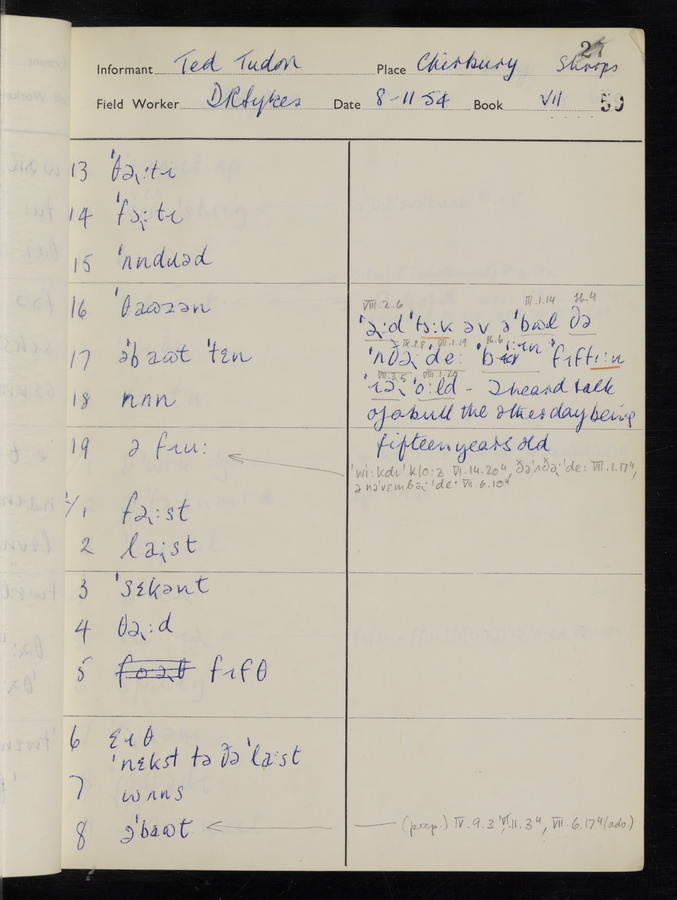 27
Informant Ted Tudor Place Chirbury Shrops
Field Worker D R Sykes Date 8-11-54 Book VII 59
13 ˈθəː˞ti
14 ˈfəː˞ti
15 ˈʌndɹəd
16 ˈθaʊzən
17 əˈbaʊt ˈtɛn
18 nʌn
19 ə fɪuː
1 fəː˞st
2 laːst
3 ˈsɛkənt
4 θəː˞d
5 fɪfθ
6 ɛɪθ
ˈnɛkst tə ðə ˈlaːst
7 wʌns
8 əˈbaʊt
VIII.2.6 III.1.14
ˈəː˞d ˈtɔːk əv ə ˈbʊl ðə
ˈʌðə˞ ˈdeː ˈbiːɪn ˈfɪftiːn
ˈɪə˞ ˈoːld - I heard talk
of a bull the other day being
fifteen years old
ˈwiːkdɪ ˈkloːz VI.14.20ᵘ, ðəˈʌðə˞ ˈdeː VII.1.17ᵘ,
ə nəˈvɛmbə˞ ˈdeː VII.6.10ᵘ
(prep.) IV.9.3 VI.11.3ᵘ, VII.6.17ᵘ (adv.)